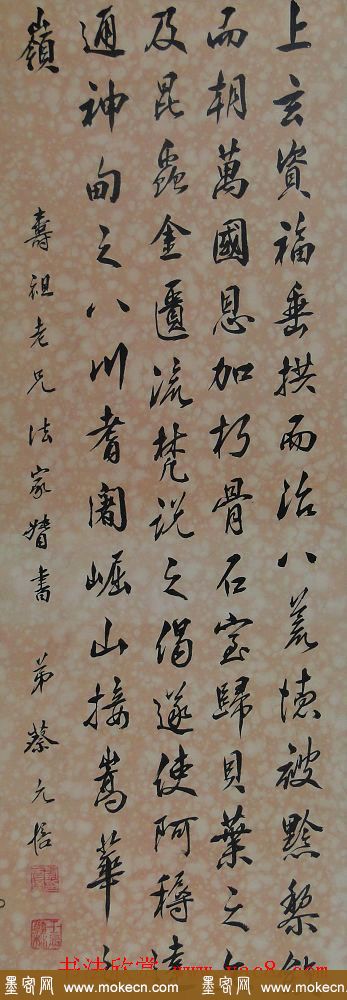 上玄資福垂拱而治八荒德被黔黎斂
而朝萬國恩加朽骨石室歸貝葉之文
及昆蟲金匱流梵說之偈遂使阿耨達
通神甸之八川耆闍崛山接嵩華之
嶺
壽祖老兄法家督書 弟蔡元培
书法欣赏 www.yac8.com
墨客网 www.mokecn.com 墨客网 www.mokecn.com